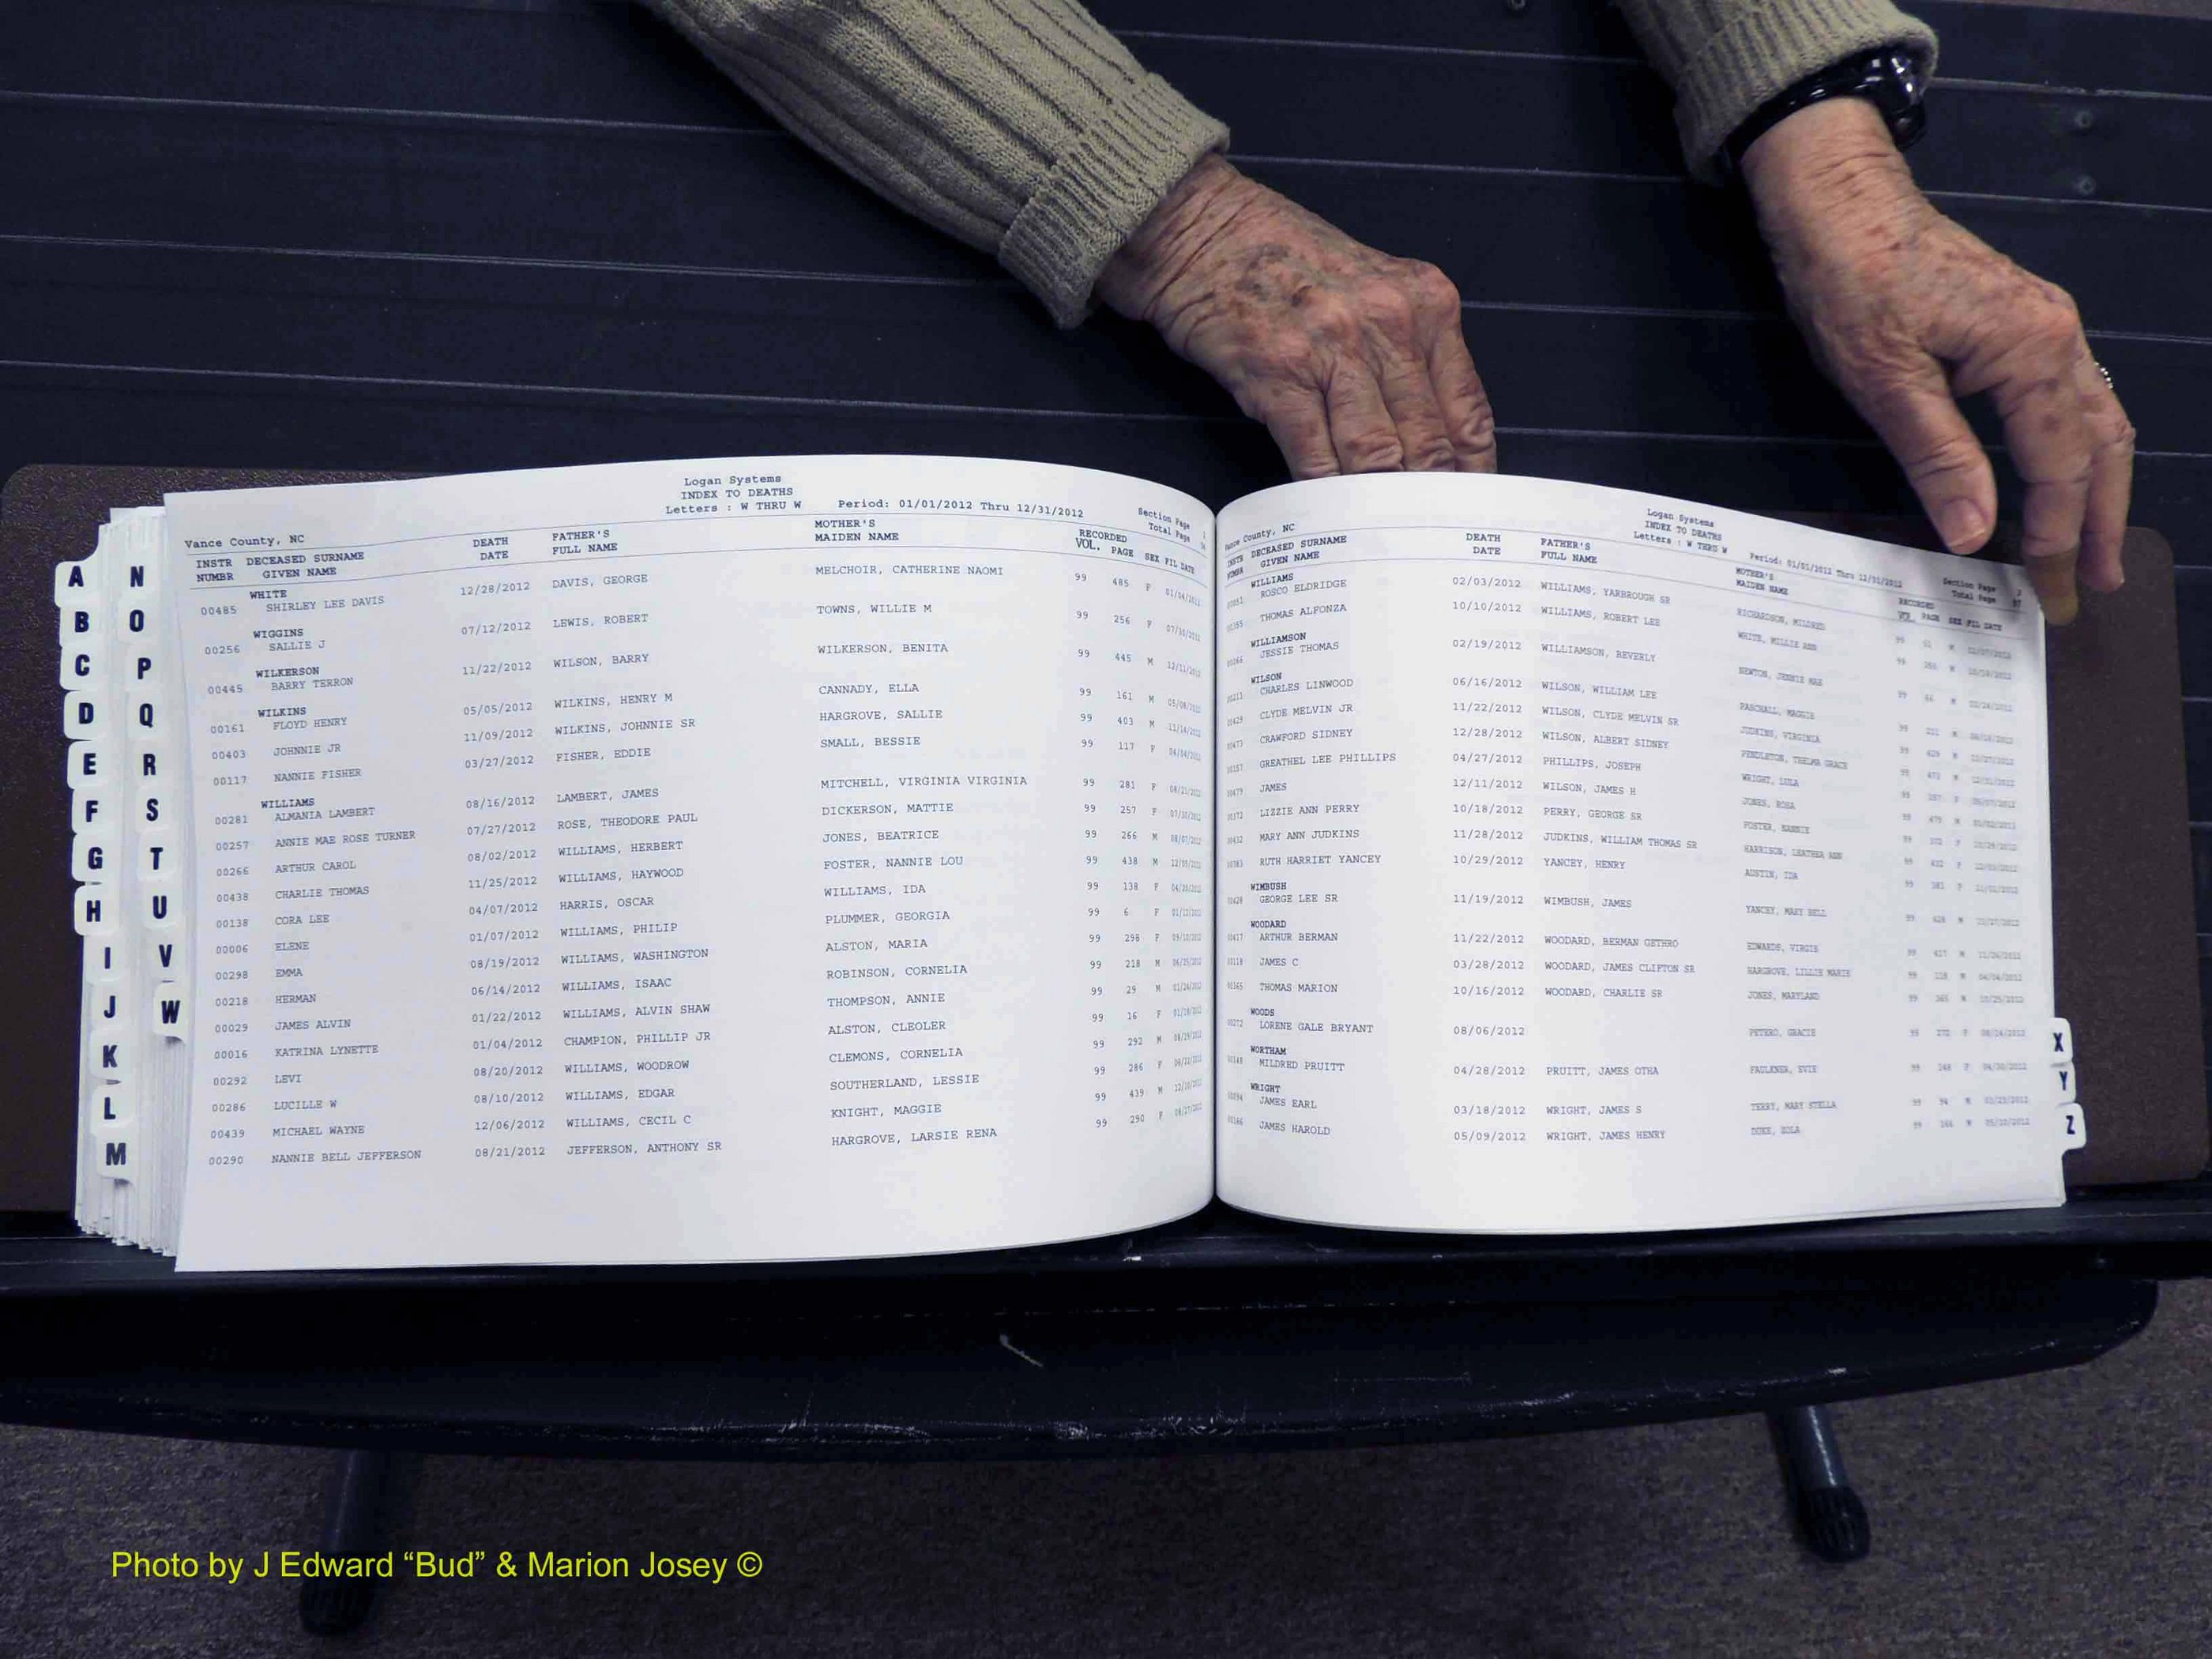 Logan Systems
INDEX TO DEATHS
Letters : W THRU W Period: 01/01/2012 Thru 12/31/2012
Section Page
Total Page
Vance County, NC
INSTR DECEASED SURNAME DEATH FATHER'S MOTHER'S RECORDED
NUMBR GIVEN NAME DATE FULL NAME MAIDEN NAME VOL. PAGE SEX FIL DATE
WHITE
00485 SHIRLEY LEE DAVIS 12/28/2012 DAVIS, GEORGE MELCHOIR, CATHERINE NAOMI 99 485 F
WIGGINS
00256 SALLIE J 07/12/2012 LEWIS, ROBERT TOWNS, WILLIE M 99 256 F
WILKERSON
00445 BARRY TERRON 11/22/2012 WILSON, BARRY WILKERSON, BENITA 99 445 M
WILKINS
00161 FLOYD HENRY 05/05/2012 WILKINS, HENRY M CANNADY, ELLA 99 161 M
00403 JOHNNIE JR 11/09/2012 WILKINS, JOHNNIE SR HARGROVE, SALLIE 99 403 M
00117 NANNIE FISHER 03/27/2012 FISHER, EDDIE SMALL, BESSIE 99 117 F
WILLIAMS
00281 ALMANIA LAMBERT 08/16/2012 LAMBERT, JAMES MITCHELL, VIRGINIA VIRGINIA 99 281 F
00257 ANNIE MAE ROSE TURNER 07/27/2012 ROSE, THEODORE PAUL DICKERSON, MATTIE 99 257 F
00266 ARTHUR CAROL 08/02/2012 WILLIAMS, HERBERT JONES, BEATRICE 99 266 M
00438 CHARLIE THOMAS 11/25/2012 WILLIAMS, HAYWOOD FOSTER, NANNIE LOU 99 438 M
00138 CORA LEE 04/07/2012 HARRIS, OSCAR WILLIAMS, IDA 99 138 F
00006 ELENE 01/07/2012 WILLIAMS, PHILIP PLUMMER, GEORGIA 99 6 F
00298 EMMA 08/19/2012 WILLIAMS, WASHINGTON ALSTON, MARIA 99 298 F
00218 HERMAN 06/14/2012 WILLIAMS, ISAAC ROBINSON, CORNELIA 99 218 M
00029 JAMES ALVIN 01/22/2012 WILLIAMS, ALVIN SHAW THOMPSON, ANNIE 99 29 M
00016 KATRINA LYNETTE 01/04/2012 CHAMPION, PHILLIP JR ALSTON, CLEOLER 99 16 F
00292 LEVI 08/20/2012 WILLIAMS, WOODROW CLEMONS, CORNELIA 99 292 M
00286 LUCILLE W 08/10/2012 WILLIAMS, EDGAR SOUTHERLAND, LESSIE 99 286 F
00439 MICHAEL WAYNE 12/06/2012 WILLIAMS, CECIL C KNIGHT, MAGGIE 99 439 M
00290 NANNIE BELL JEFFERSON 08/21/2012 JEFFERSON, ANTHONY SR HARGROVE, LARSIE RENA 99 290 F
A
B
C
D
E
F
G
H
I
J
K
L
M
N
O
P
Q
R
S
T
U
V
W
Logan Systems
INDEX TO DEATHS
Letters : W THRU W Period: 01/01/2012 Thru 12/31/2012
Section Page 3
Total Page 97
Vance County, NC
INSTR DECEASED SURNAME DEATH FATHER'S MOTHER'S RECORDED
NUMBR GIVEN NAME DATE FULL NAME MAIDEN NAME VOL. PAGE SEX FIL DATE
WILLIAMS
ROSCO ELDRIDGE 02/03/2012 WILLIAMS, YARBROUGH SR RICHARDSON, MILDRED
THOMAS ALFONZA 10/10/2012 WILLIAMS, ROBERT LEE WHITE, MILLIE ANN
WILLIAMSON
JESSIE THOMAS 02/19/2012 WILLIAMSON, BEVERLY NEWTON, JENNIE MAE
WILSON
CHARLES LINWOOD 06/16/2012 WILSON, WILLIAM LEE PASCHALL, MAGGIE
CLYDE MELVIN JR 11/22/2012 WILSON, CLYDE MELVIN SR JUDKINS, VIRGINIA
CRAWFORD SIDNEY 12/28/2012 WILSON, ALBERT SIDNEY PENDLETON, THELMA GRACE
GREATHEL LEE PHILLIPS 04/27/2012 PHILLIPS, JOSEPH WRIGHT, LULA
JAMES 12/11/2012 WILSON, JAMES H JONES, ROSA
LIZZIE ANN PERRY 10/18/2012 PERRY, GEORGE SR FOSTER, NANNIE
MARY ANN JUDKINS 11/28/2012 JUDKINS, WILLIAM THOMAS SR HARRISON, LEATHEA ANN
RUTH HARRIET YANCEY 10/29/2012 YANCEY, HENRY AUSTIN, IDA
WIMBUSH
GEORGE LEE SR 11/19/2012 WIMBUSH, JAMES YANCEY, MARY BELL
WOODARD
ARTHUR BERMAN 11/22/2012 WOODARD, BERMAN GETHRO EDWARDS, VIRGIE
JAMES C 03/28/2012 WOODARD, JAMES CLIFTON SR HARGROVE, LILLIE MARIE
THOMAS MARION 10/16/2012 WOODARD, CHARLIE SR JONES, MARYLAND
WOODS
LORENE GALE BRYANT 08/06/2012 GRACIE
WORTHAM
MILDRED PRUITT 04/28/2012 PRUITT, JAMES OTHA FAULKNER, EVIE
WRIGHT
JAMES EARL 03/18/2012 WRIGHT, JAMES S TERRY, MARY STELLA
JAMES HAROLD 05/09/2012 WRIGHT, JAMES HENRY DUKE, ZOLA
X
Y
Z
Photo by J Edward “Bud” & Marion Josey ©